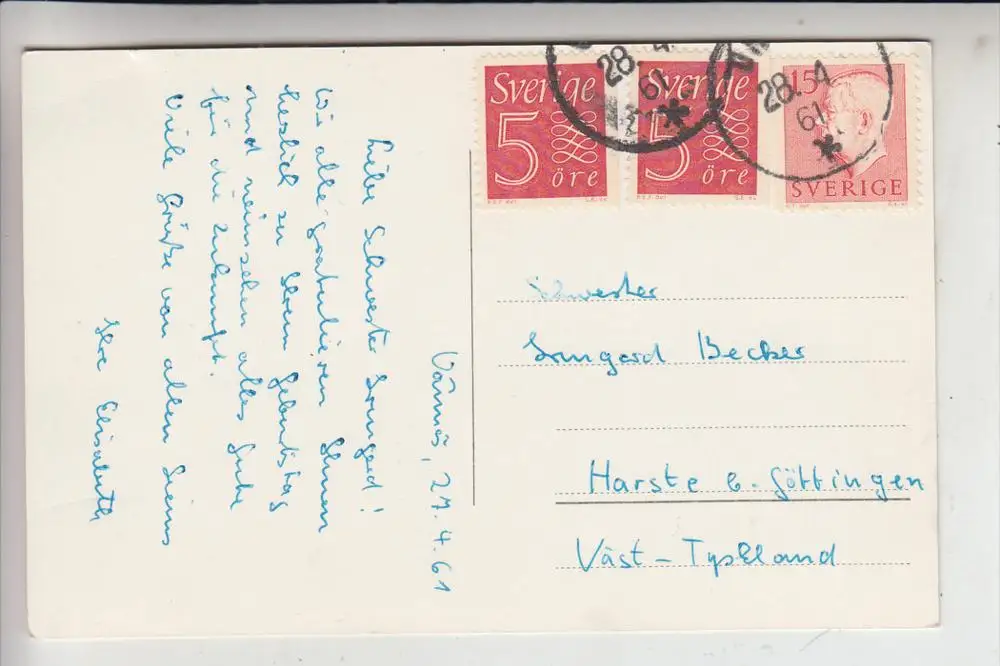 Vännäs, 27.4.61
Liebe Schwester Irmgard!
Wir alle gratulieren Ihnen
herzlich zu Ihrem Geburtstag
und wünschen alles Gute
für die Zukunft.
Viele Grüße von allen
Ihre Elisabeth
Sverige
5
öre
Sverige
5
öre
15
SVERIGE
28. 4.
61
28. 4
61
Schwester
Irmgard Becker
Harste b. Göttingen
Väst-Tyskland